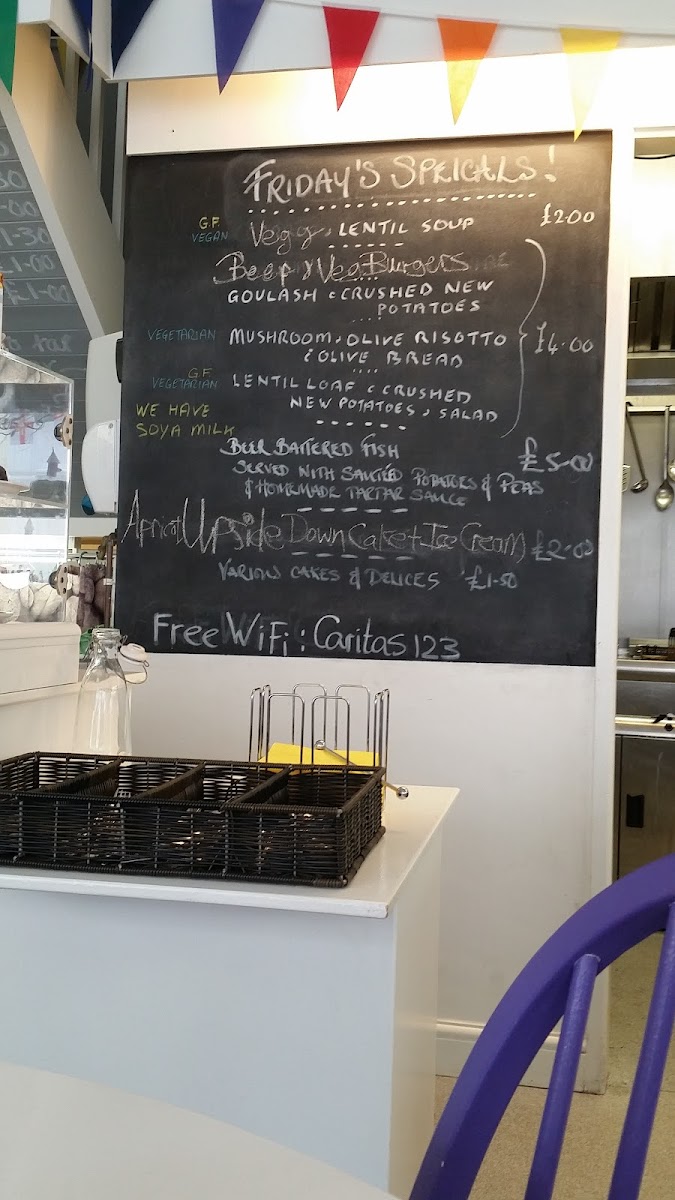 FRIDAY'S SPEICALS!
G.F.
VEGAN
Vegg, LENTIL SOUP £2.00
Beef, Veg Burgers
GOULASH c CRUSHED NEW
POTATOES
VEGETARIAN MUSHROOM, OLIVE RISOTTO £4.00
& OLIVE BREAD
G.F.
VEGETARIAN LENTIL LOAF c CRUSHED
NEW POTATOES, SALAD
WE HAVE
SOYA MILK
BEER BATTERED FISH £5.00
SERVED WITH SAUTÉED POTATOES & PEAS
& HOMEMADE TARTAR SAUCE
Apricot Upside Down Cake + Ice Cream £2.00
VARIOUS CAKES & DELICES £1.50
Free WiFi : Caritas 123